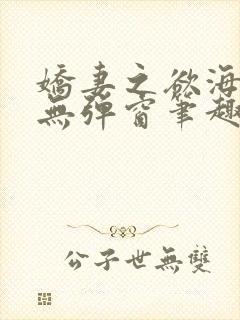 嬌妻之欲海
無彈窗筆趣
公子世無雙